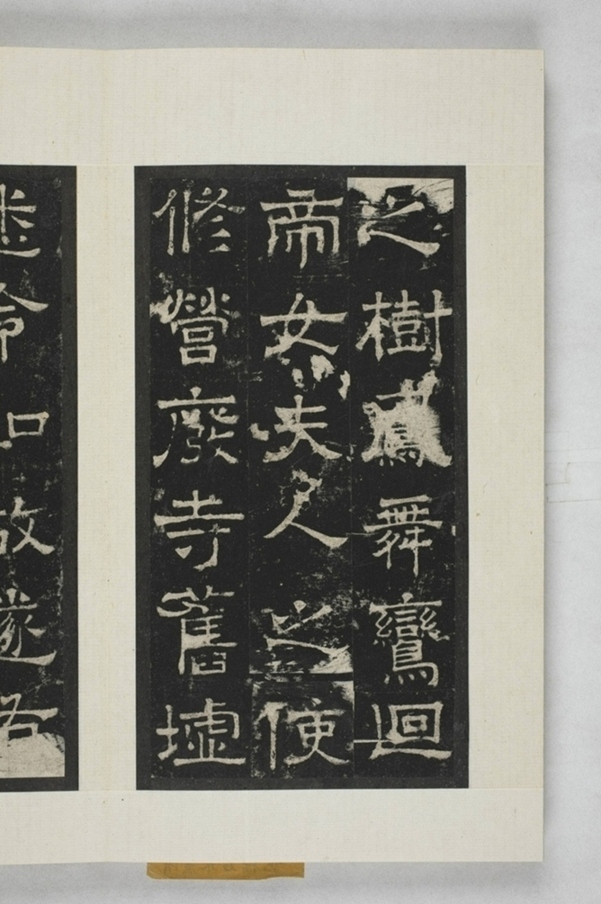 之樹鳳舞鸞迴
帝女夫人之使
修營廢寺舊墟
故遂